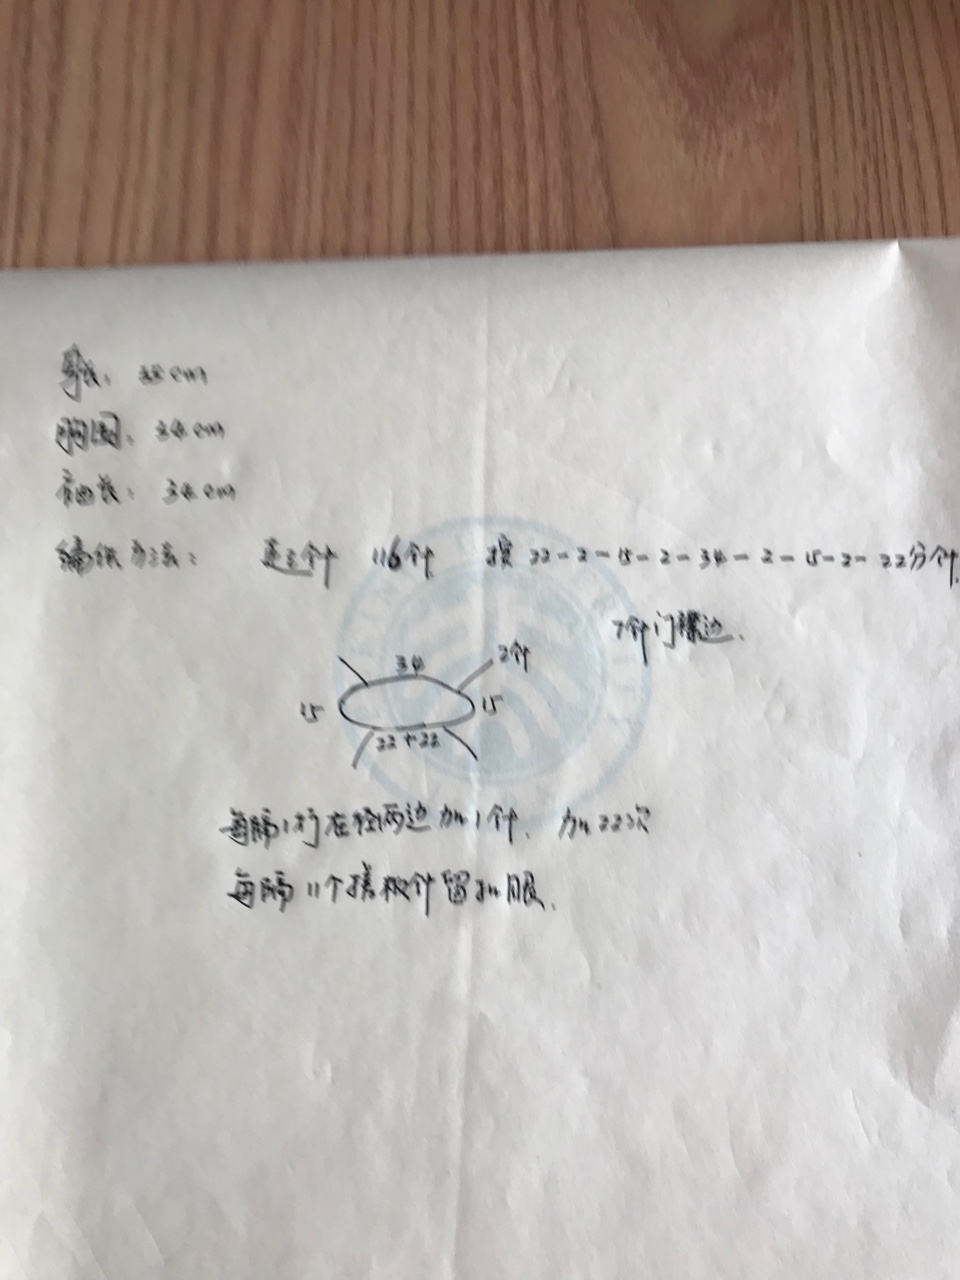 胸围：34cm
袖长：34cm
编织方法： 起针 116个 按 22-2-15-2-34-2-15-2-22分针.
7针门襟边.
34 2针
15 15
22+22
每隔1行在径两边加1针. 加22次
每隔11个搓板针留扣眼.